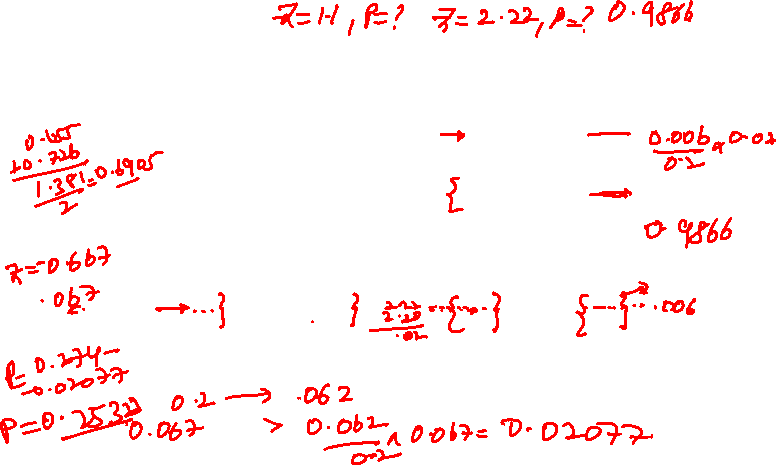 Z=1.1, P=? Z=2.22, P=? 0.9866
0.655
+0.726
1.381=0.6905
2
→ — 0.006 × 0.02
0.2
{ →
0.9866
Z=-0.667
.067
→...} . } 2.22
2.20
.02
...{......} {....}... .006
P=0.274-
0.02077
P=0.25323
0.2 → .062
0.067 > 0.062 × 0.067=0.02077
0.2